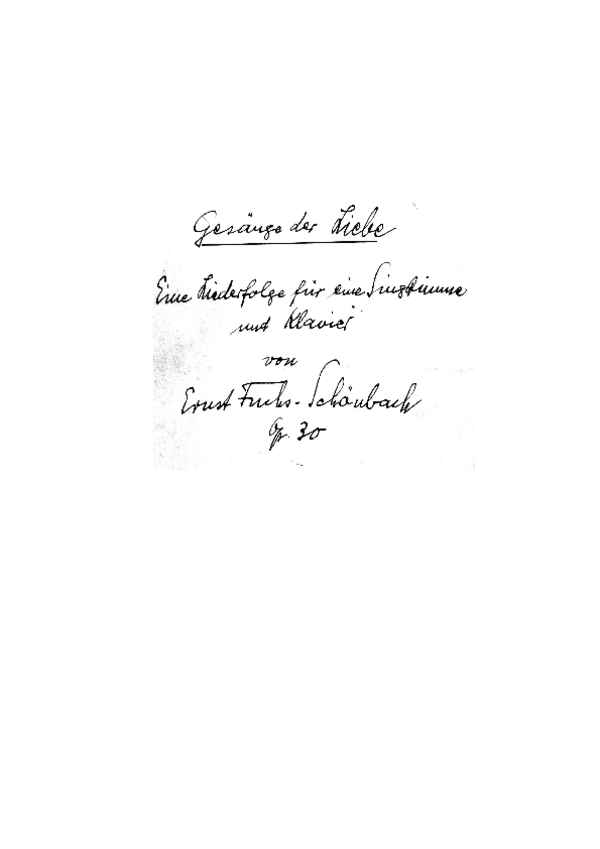 Gesänge der Liebe
Eine Liederfolge für eine Singstimme
und Klavier
von
Ernst Fuchs-Schönbach
Op. 30